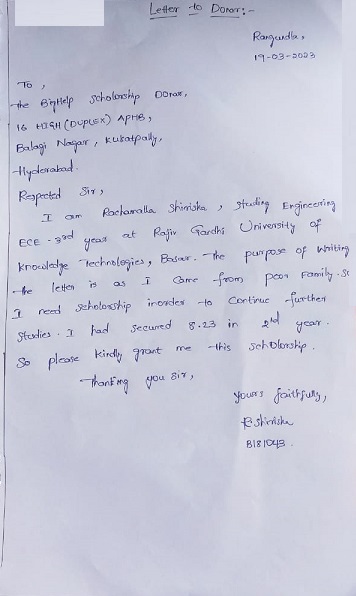 Letter to Donor:-
19-03-2023
To,
The BigHelp Scholorship Donar,
16 HIGH (DUPLEX) APHB,
Balagi Nagar, Kukatpally,
Hyderabad.
Respected Sir,
I am Rachamalla Shirisha, studing Engineering
ECE - 3rd year at Rajiv Gandhi University of
Knowledge Technologies, Basar. The purpose of writing
the letter is as I came from poor family. So
I need scholorship inorder to continue further
studies. I had secured 8.23 in 2nd year.
So please kindly grant me this scholorship.
Thanking you sir,
yours faithfully,
R Shirisha
B181043.